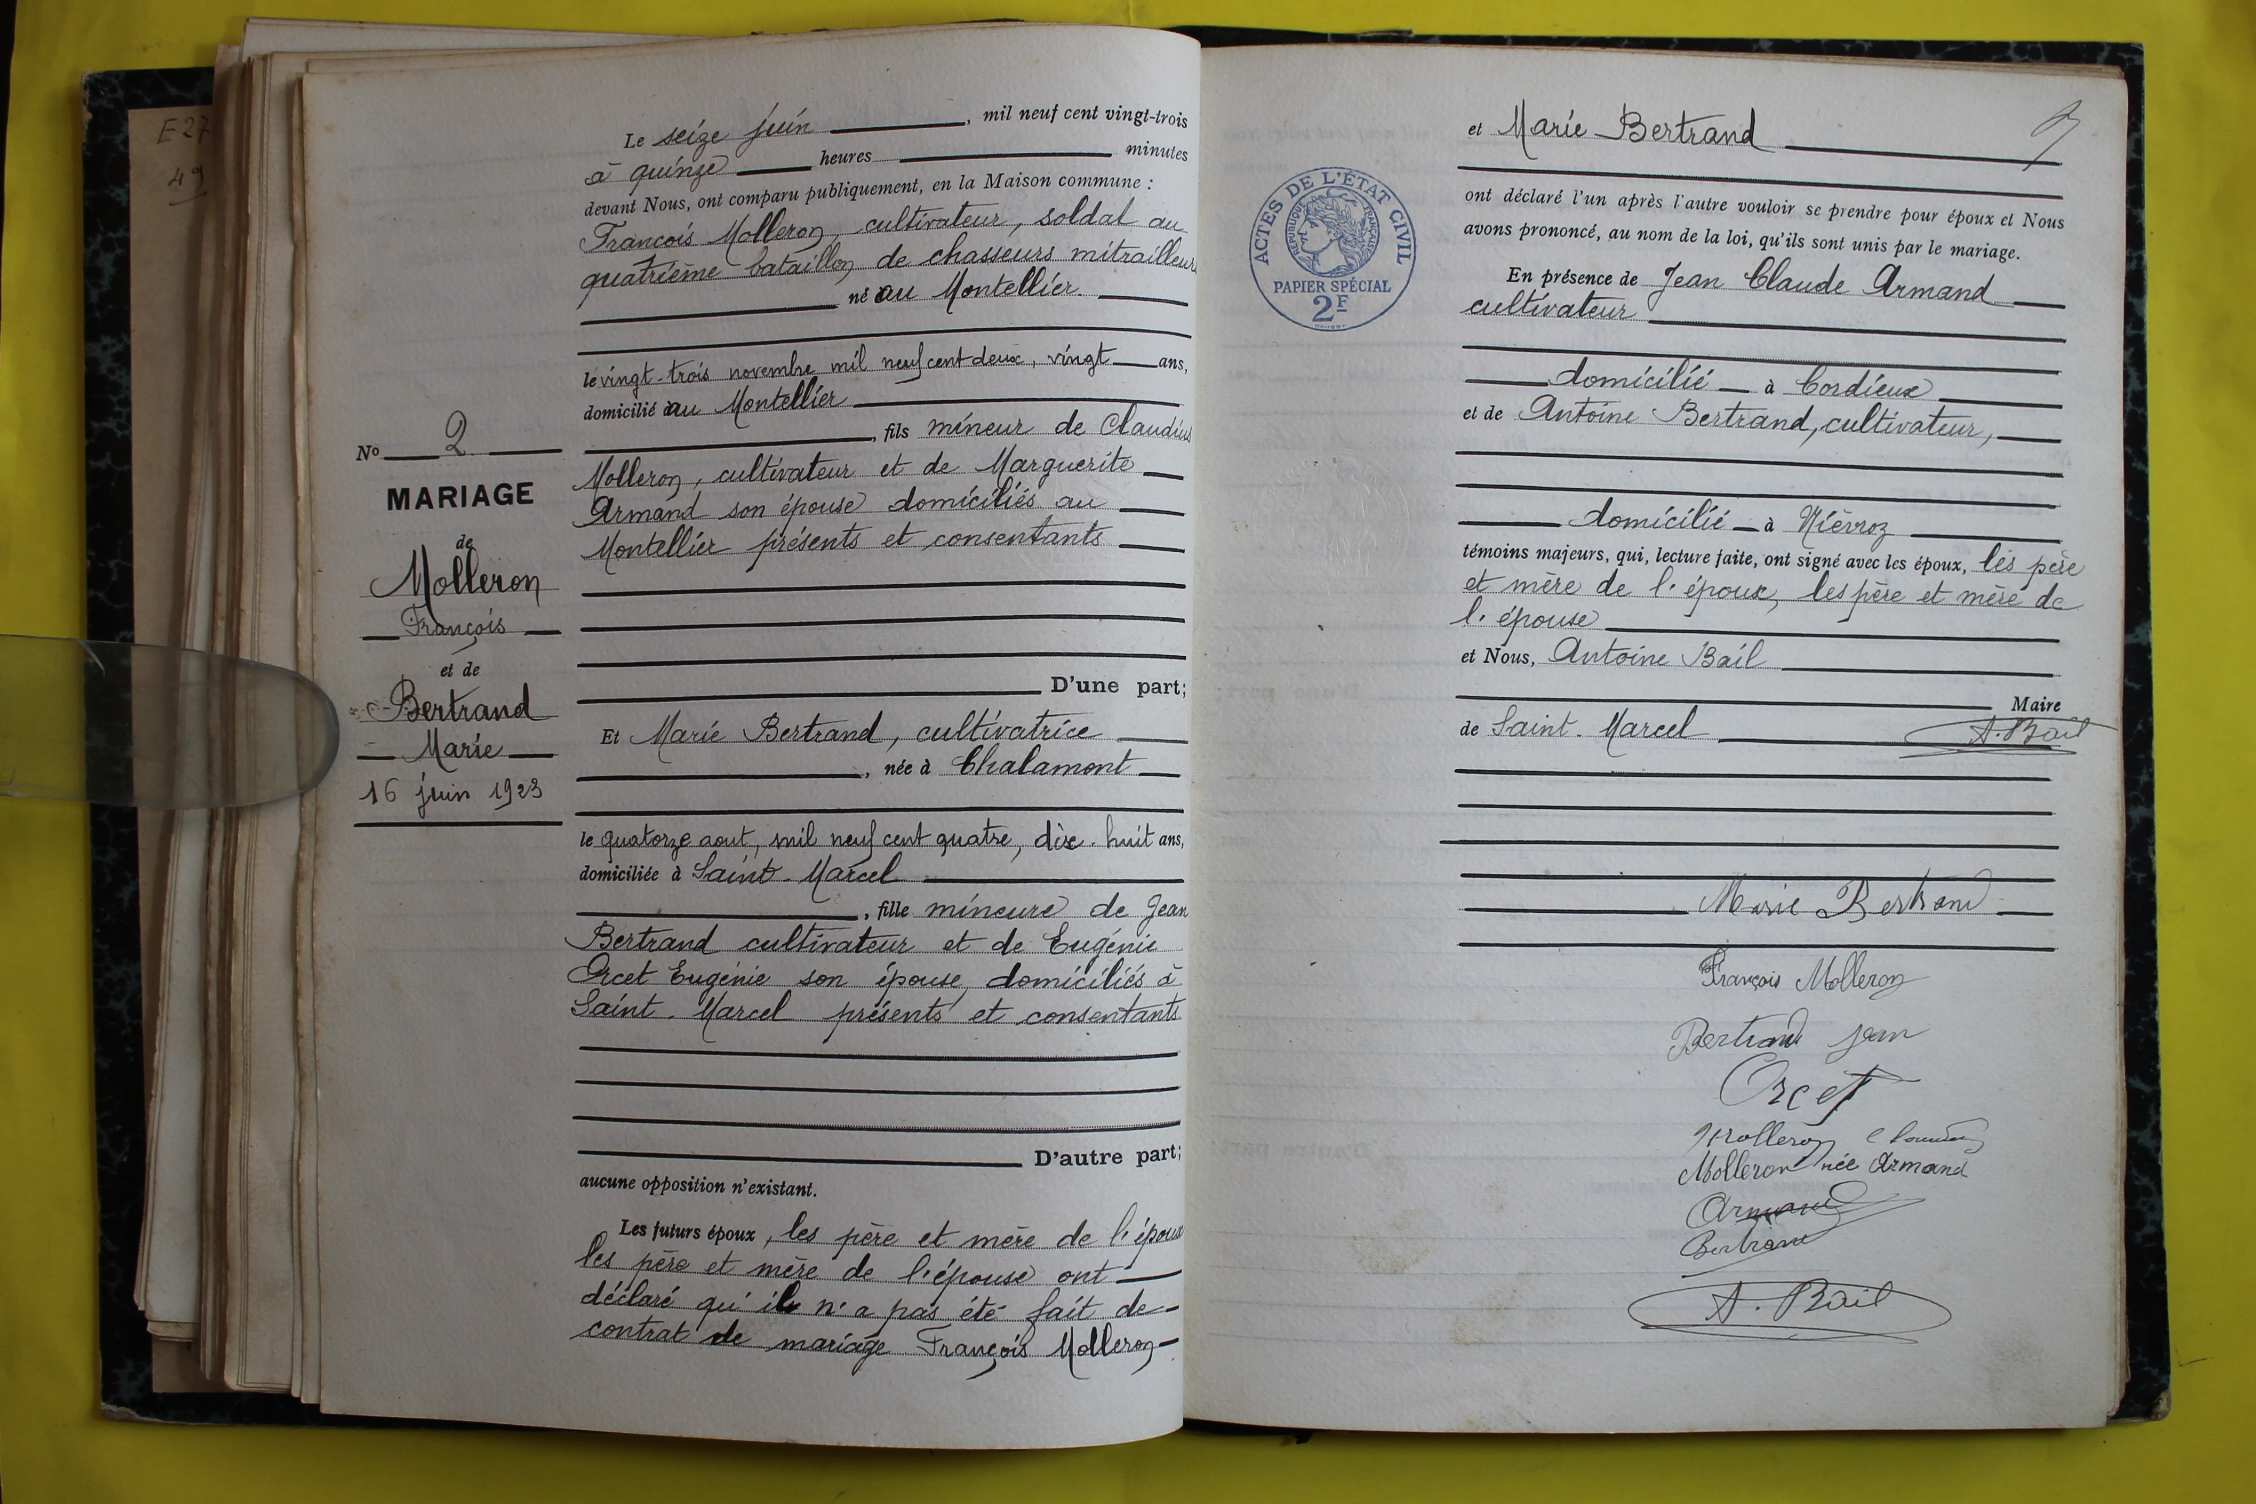 E27
49
N° 2
MARIAGE
de
Molleron
François
et de
Bertrand
Marie
16 juin 1923
Le seize juin, mil neuf cent vingt-trois
à quinze heures minutes
devant Nous, ont comparu publiquement, en la Maison commune :
François Molleron, cultivateur, soldat au
quatrième bataillon de chasseurs mitrailleurs
né au Montellier
le vingt-trois novembre mil neuf cent deux, vingt ans,
domicilié au Montellier
, fils mineur de Claudius
Molleron, cultivateur et de Marguerite
Armand son épouse domiciliés au
Montellier présents et consentants
D'une part;
Et Marie Bertrand, cultivatrice
, née à Chalamont
le quatorze aout, mil neuf cent quatre, dix-huit ans,
domiciliée à Saint-Marcel
, fille mineure de Jean
Bertrand cultivateur et de Eugénie
Orcet Eugénie son épouse, domiciliés à
Saint-Marcel présents et consentants
D'autre part;
aucune opposition n'existant.
Les futurs époux, les père et mère de l'époux
les père et mère de l'épouse ont
déclaré qu'il n'a pas été fait de
contrat de mariage François Molleron
et Marie Bertrand
ACTES DE L'ÉTAT CIVIL
RÉPUBLIQUE FRANÇAISE
PAPIER SPÉCIAL
2F
ont déclaré l'un après l'autre vouloir se prendre pour époux et Nous
avons prononcé, au nom de la loi, qu'ils sont unis par le mariage.
En présence de Jean Claude Armand
cultivateur
domicilié à Cordieux
et de Antoine Bertrand, cultivateur,
domicilié à Niévroz
témoins majeurs, qui, lecture faite, ont signé avec les époux, les père
et mère de l'époux, les père et mère de
l'épouse
et Nous, Antoine Bail
Maire
de Saint-Marcel A. Bail
Marie Bertrand
François Molleron
Bertrand Jean
Orcet
Molleron
Molleron née Armand
Armand
Bertrand
A. Bail